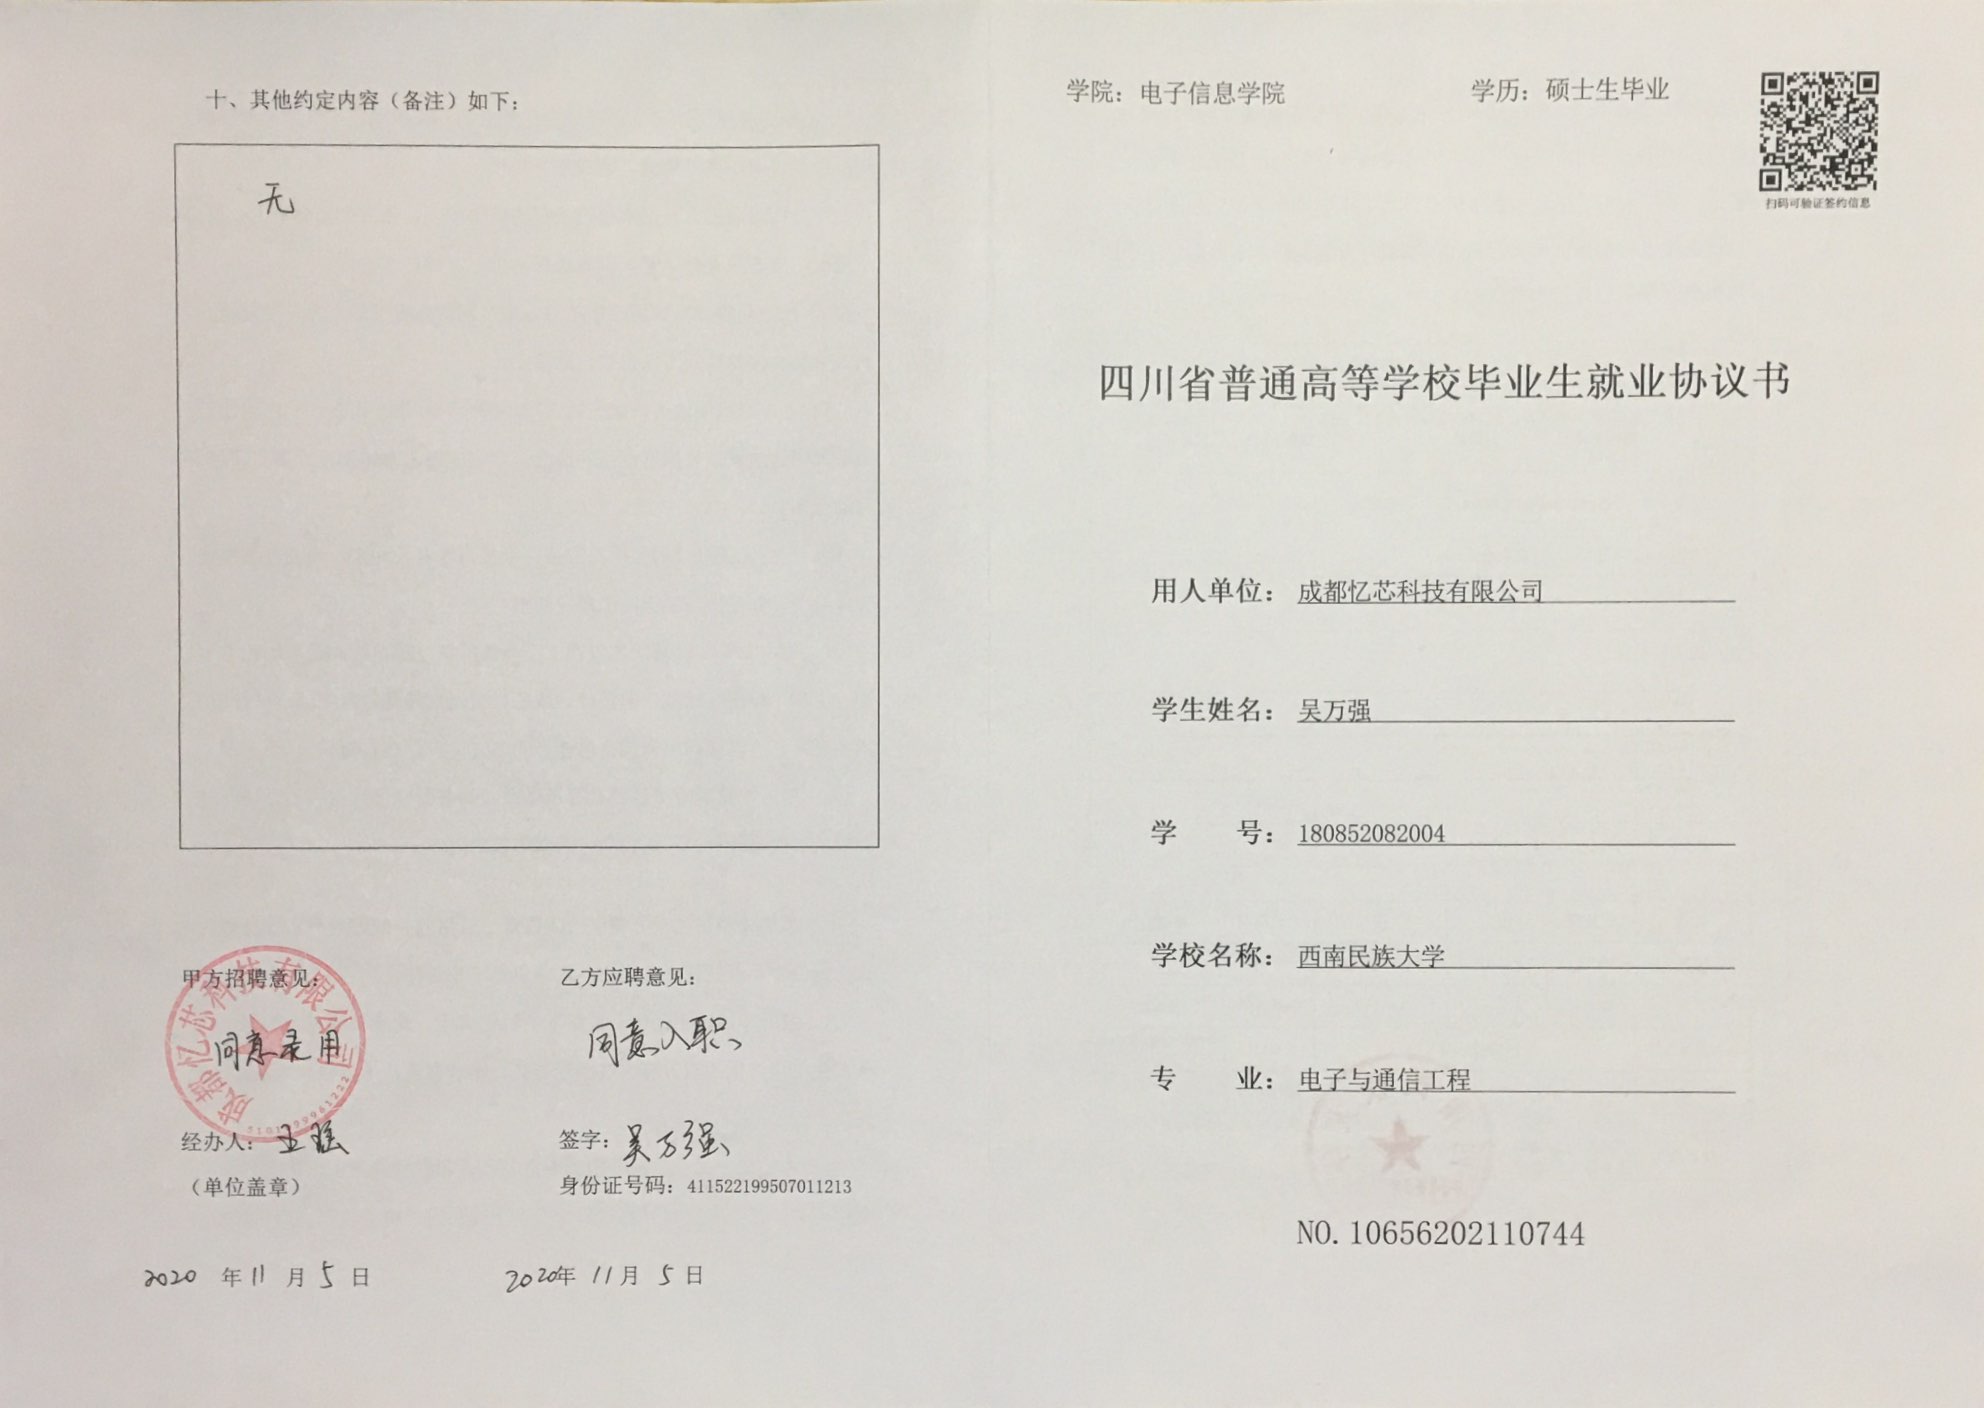 十、其他约定内容（备注）如下：
无
甲方招聘意见：
同意录用
成都忆芯科技有限公司
经办人：王瑶
（单位盖章）
2020 年 11 月 5 日
乙方应聘意见：
同意入职
签字：吴万强
身份证号码：411522199507011213
2020年 11月 5 日
学院：电子信息学院
学历：硕士生毕业
扫码可验证签约信息
四川省普通高等学校毕业生就业协议书
用人单位：成都忆芯科技有限公司
学生姓名：吴万强
学 号：180852082004
学校名称：西南民族大学
专 业：电子与通信工程
NO.10656202110744